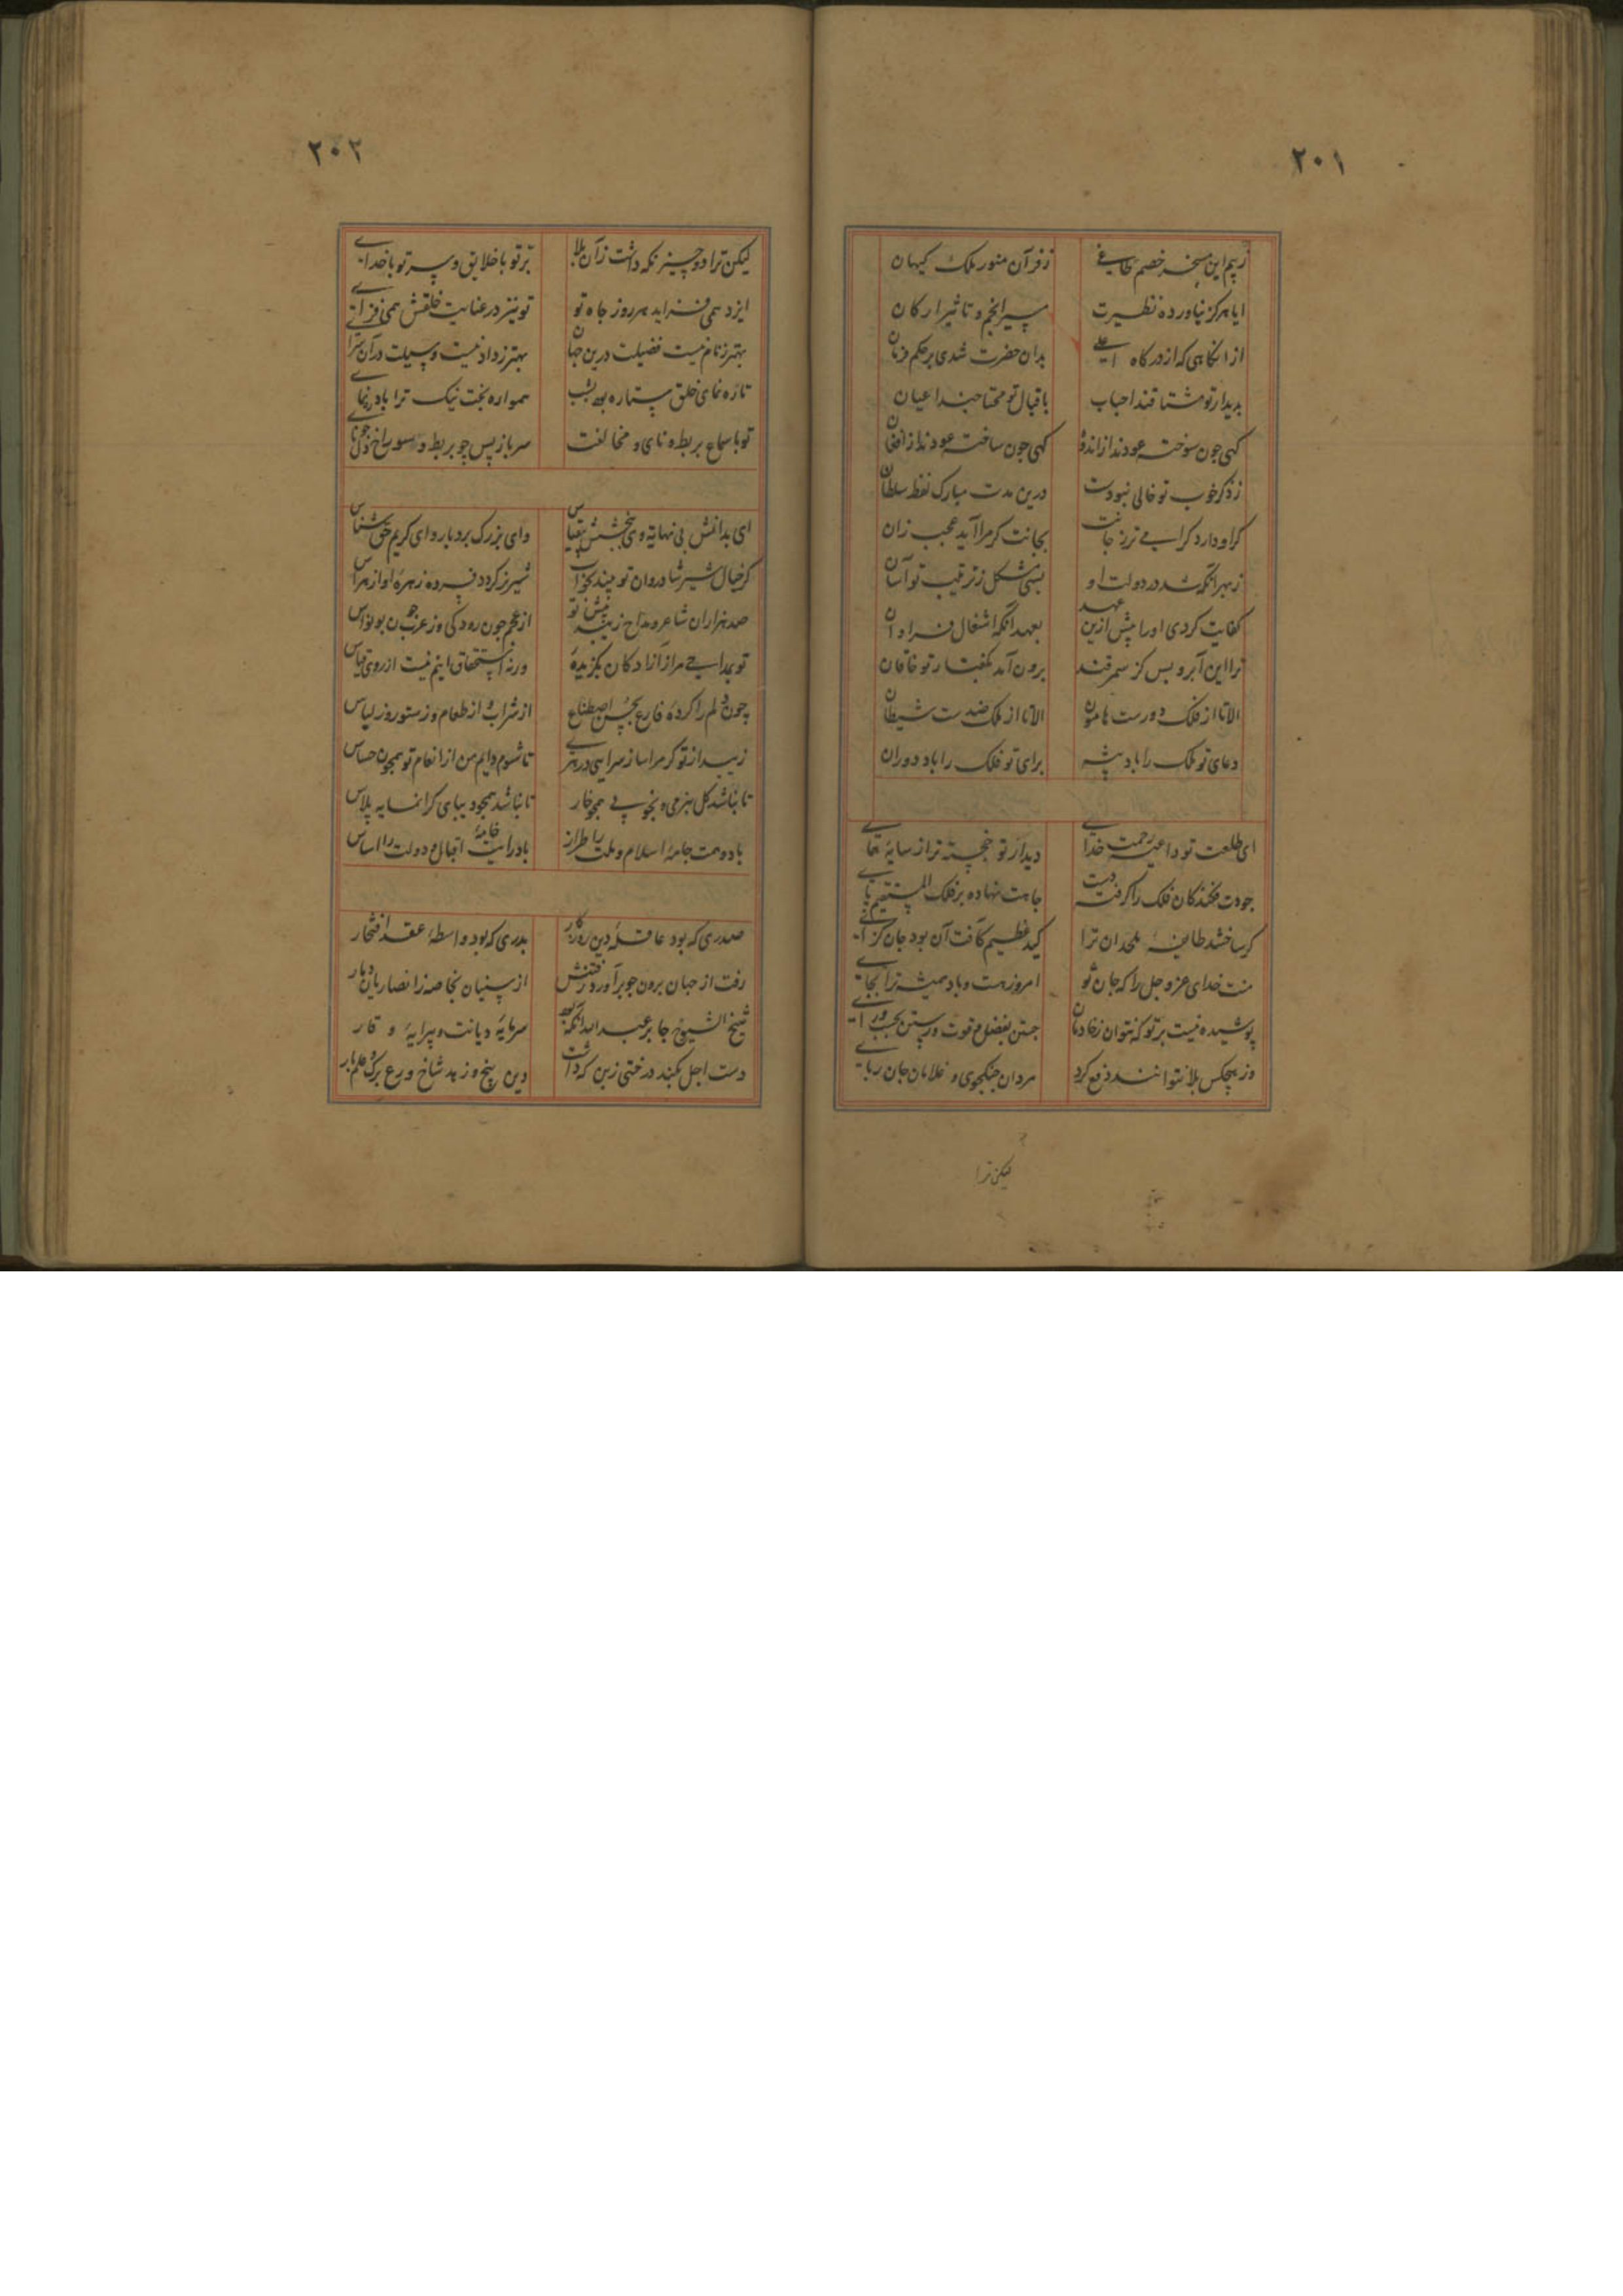 ۲۰۱
ز بیم این مسخر خصم طاغی ز فر آن منور ملک کیهان
ایا هرگز نیاورده نظیرت سیر انجم و تاثیر ارکان
از انکاهی که از درکاه اعلی بدان حضرت شدی بر حکم فرمان
بدیدار تو مشتاقند احباب باقبال تو محتاجند اعیان
کهی چون سوخته عودند از اندوه کهی چون ساخته عودند از افغان
ز ذکر خوب تو خالی نبودست درین مدت مبارک لفظ سلطان
کر او دارد کرامی تر ز جانت بجانت کر مرا آید عجب زان
ز بهر آنکه شد در دولت او بسی مشکل ز ترتیب تو آسان
کفایت کردی او را پیش ازین عهد بعهد آنکه اشغال فراوان
ترا این آبرو بس کز سمرقند برون آمد بکفتار تو خاقان
الا تا از فلک دورست هامون الا تا از ملک ضدست شیطان
دعای تو ملک را باد پیشه برای تو فلک را باد دوران
ای طلعت تو داعیه رحمت خدای دیدار تو خجسته تر از سایه همای
جودت فکندکان فلک را کرفت دست جاهت نهاده بر فلک المستقیم پای
کر ساختند طایفه ملحدان ترا کید عظیم کافت آن بود جان کزای
منت خدای عز و جل را که جان تو امروز هست و باد همیشه ترا بجای
پوشیده نیست بر تو که نتوان ز حادثات جستن بفضل و قوت و رستن بحسب و رای
وز هیچکس بلا نتوانند دفع کرد مردان جنکجوی و غلامان جان ربای
لیکن ترا
۲۰۲
لیکن ترا دو چیز نکه داشت زان بلا بر تو با خلایق و سر تو با خدای
ایزد همی فزاید هر روز جاه تو تو نیز در عنایت خلقش همی فزای
بهتر ز نام نیست فضیلت درین جهان بهتر ز داد نیست وسیلت در آن سرای
تا ره نمای خلق ستاره بود بشب همواره بخت نیک ترا باد رهنمای
تو با سماع بربط و نای و مخالفت سر باز پس چو بربط و سوراخ دل چو نای
ای بدانش بی نهایة وی ببخشش بی قیاس وای بزرک بردبار و ای کریم حق شناس
کر خیال شیر شادروان تو بیند بخواب شیر کردد فسرده زهره او از هراس
صد هزاران شاعر و مداح زیبد پیش تو از عجم چون رودکی وز عرب چون بونواس
تو بمداحی مرا ز آزادکان بکزیدهٔ ورنه استحقاق اینم نیست از روی قیاس
چون دلم را کردهٔ فارغ بحسن اصطناع از شراب و از طعام و ز ستور و ز لباس
زیبد از تو کر مرا سازی سرایی در هری تا شوم دایم من از انعام تو همچون حساس
تا نباشد کل بنرمی و بخوبی همچو خار تا نباشد همچو دیبای کرانمایه پلاس
باد وهمت جامهٔ اسلام و ملت را طراز باد رایت خانهٔ اقبال و دولت را اساس
صدری که بود عاقلهٔ دین روزکار بدری که بود واسطهٔ عقد افتخار
رفت از جهان برون چو برآورد رفتنش از سنیان بخاصه ز انصاریان دمار
شیخ الشیوخ جابر عبد الله آنکه بود سرمایهٔ دیانت و پیرایهٔ وقار
دست اجل بکند درختی زبن که داشت دین بیخ و زهد شاخ و ورع برک و علم بار